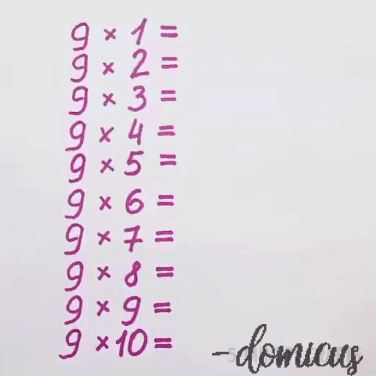 9 × 1 =
9 × 2 =
9 × 3 =
9 × 4 =
9 × 5 =
9 × 6 =
9 × 7 =
9 × 8 =
9 × 9 =
9 × 10 =
-domicus